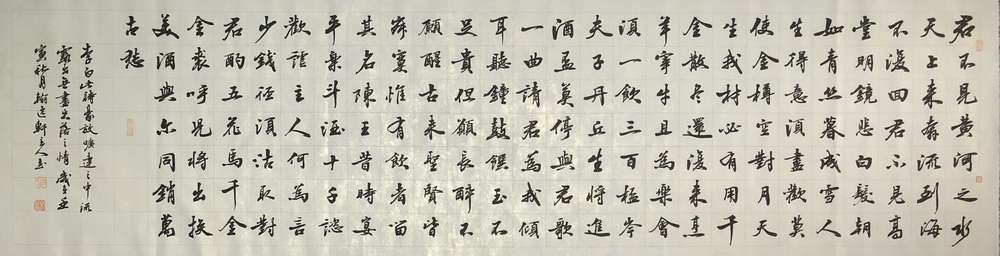 君不見黃河之水
天上來奔流到海
不復回君不見高
堂明鏡悲白髮朝
如青絲暮成雪人
生得意須盡歡莫
使金樽空對月天
生我材必有用千
金散盡還復來烹
羊宰牛且為樂會
須一飲三百杯岑
夫子丹丘生將進
酒盃莫停與君歌
一曲請君為我傾
耳聽鐘鼓饌玉不
足貴但願長醉不
願醒古來聖賢皆
寂寞惟有飲者留
其名陳王昔時宴
平樂斗酒十千恣
歡謔主人何為言
少錢徑須沽取對
君酌五花馬千金
金裘呼兒將出換
美酒與爾同銷萬
古愁
李白此詩豪放曠達之中流
露出無盡失落之情歲在
寅秋月翰逸軒主人書